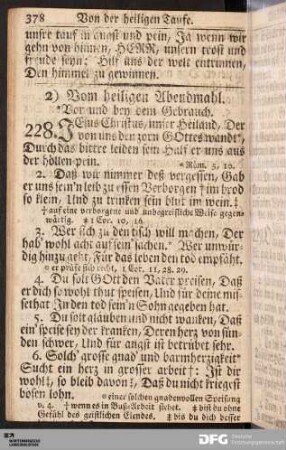 378 Von der heiligen Taufe.
unsre tauf in angst und pein, Ja wenn wir
gehn von hinnen, HERR, unsern trost und
freude seyn: Hilf uns der welt entrinnen,
Den himmel zu gewinnen.
2) Vom heiligen Abendmahl.
*Vor und bey dem Gebrauch.
228. JEsus Christus, unser Heiland, Der
von uns den zorn GOttes wandt*,
Durch das bittre leiden sein Half er uns aus
der höllen-pein. *Röm. 5, 10.
2. Daß wir nimmer deß vergessen, Gab
er uns sein'n leib zu essen Verborgen † im brod
so klein, Und zu trinken sein blut im wein.‡
† auf eine verborgene und unbegreifliche Weise gegen-
wärtig. ‡ 1 Cor. 10, 16.
3. Wer sich zu den tisch will machen, Der
hab' wohl acht auf sein' sachen.* Wer unwür-
dig hinzu geht, Für das leben den tod empfäht.
*er prüfe sich recht, 1 Cor. 11, 28. 29.
4. Du solt GOtt den Vater preisen, Daß
er dich so wohl thut speisen, Und für deine mis-
sethat In den tod sein'n Sohn gegeben hat.
5. Du solt gläuben und nicht wanken, Daß
ein' speise sey der kranken, Deren herz von sün-
den schwer, Und für angst ist betrübet sehr.
6. Solch' grosse gnad' und barmherzigkeit*
Sucht ein herz in grosser arbeit†: Ist dir
wohl‡, so bleib davon‡, Daß du nicht kriegest
bösen lohn. *einer solchen gnadenvollen Speisung
v. 4. † wenn es in Buß-Arbeit stehet. ‡ bist du ohne
Gefühl des geistlichen Elendes. ‡ bis du dich besser
DFG Deutsche
Forschungsgemeinschaft